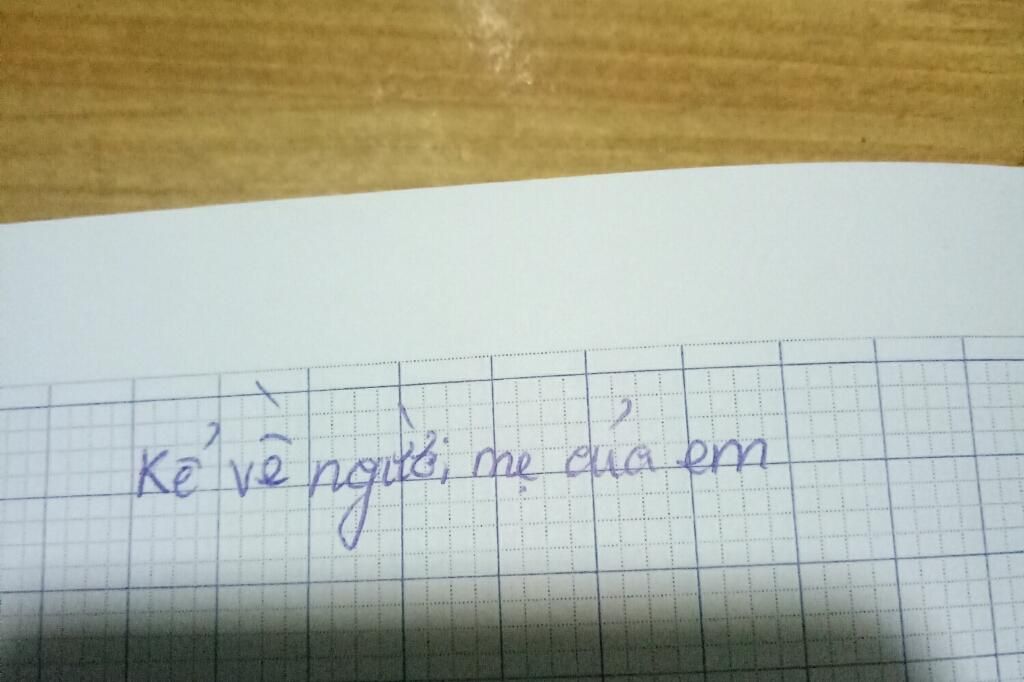 Kể về người mẹ của em